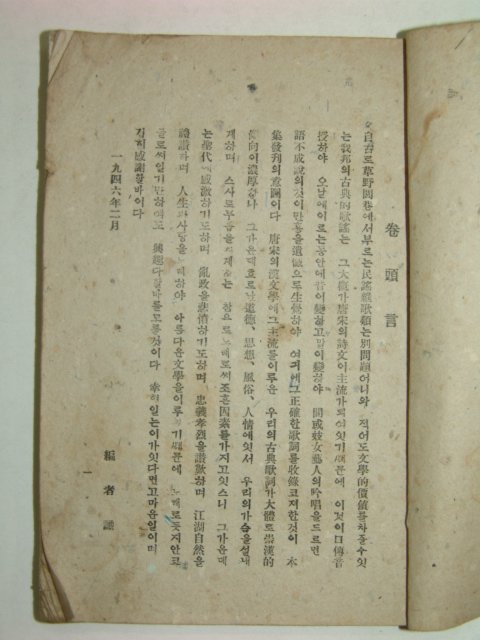 卷頭言
自古로草野閭巷에서부르는民謠雜歌類는別問題어니와 적어도文學的價値를차질수잇
는我邦의古典的歌謠는 그大槪가唐宋의詩文이主流가되여잇기때문에 이것이口傳音
授하야 오날에이르는동안에音이變하고말이變하야 間或妓女藝人의吟唱을드르면
語不成說의것이만흠을遺憾으로生覺하야 여긔에그正確한歌詞를收錄코저한것이 本
集發刊의意圖이다 唐宋의漢文學에그主流를이루운 우리의古典歌詞가大體로崇漢的
傾向이濃厚하나 그가온대흐르난道德、思想、風俗、人情에잇서 우리의가슴을설내
게하며 스사로무릅을치게하는 참으로노래로써조흔因素를가지고잇스니 그가온대
는聖代에感激하기도하며 亂政을悲憤하기도하며 忠義孝烈을讚歎하며 江湖自然을
禮讚하며 人生과사랑을 하야 아름다운文學을이루 기때문에 노래로듯지안코
글로써읽기만하여도 興趣다할바를모를것이다 幸혀일는이가잇다면고마운일이며
김히感謝할바이다
一九四六年二月
編者 謹
一